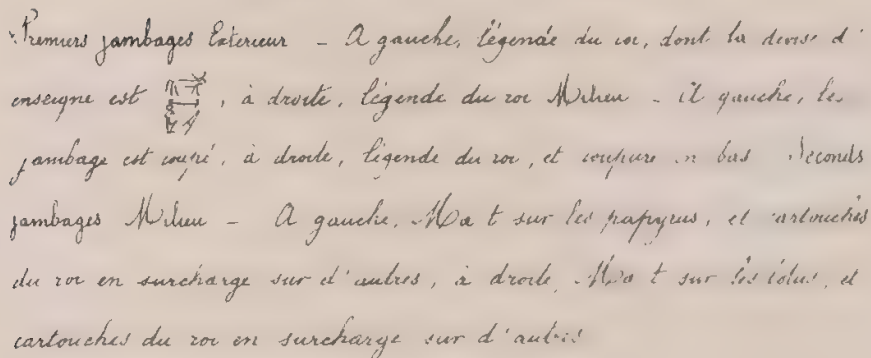 Premiers jambages Exterieur - A gauche, légende du roi, dont la devise d'
enseigne est , à droite, légende du roi Milieu - A gauche, le
jambage est coupé, à droite, légende du roi, et coupure en bas Seconds
jambages Milieu - A gauche, Ma t sur les papyrus, et cartouches
du roi en surcharge sur d'autres, à droite, Ma t sur les lotus, et
cartouches du roi en surcharge sur d'autres